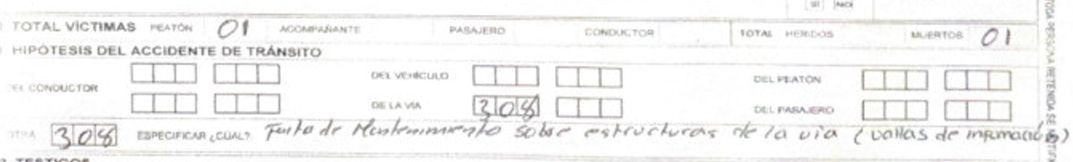 SI NO
TOTAL VÍCTIMAS PEATÓN 01 ACOMPAÑANTE PASAJERO CONDUCTOR TOTAL HERIDOS MUERTOS 01
HIPÓTESIS DEL ACCIDENTE DE TRÁNSITO
DEL CONDUCTOR DEL VEHÍCULO DEL PEATÓN
DE LA VÍA 308 DEL PASAJERO
OTRA 308 ESPECIFICAR ¿CUÁL? Falta de Mantenimiento sobre estructuras de la via (vallas de información)
TESTIGOS